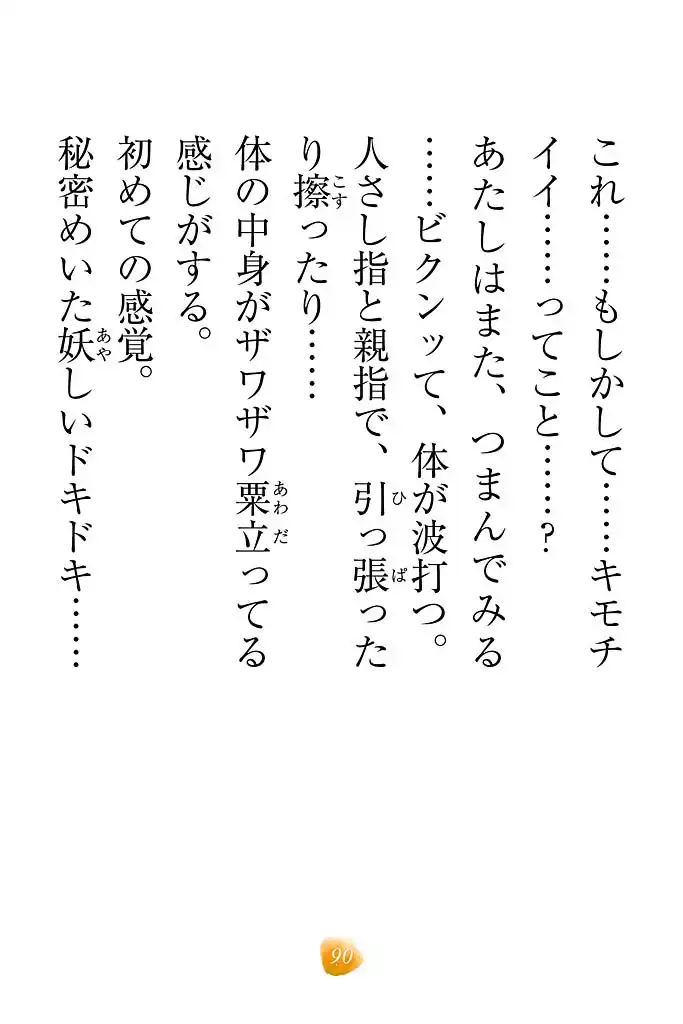 これ……もしかして……キモチ
イイ……ってこと……?
あたしはまた、つまんでみる
……ビクンッて、体が波打つ。
人さし指と親指で、引っ張った
り擦ったり……
体の中身がザワザワ粟立ってる
感じがする。
初めての感覚。
秘密めいた妖しいドキドキ……
ひ
ぱ
こす
あわ
だ
あや
90